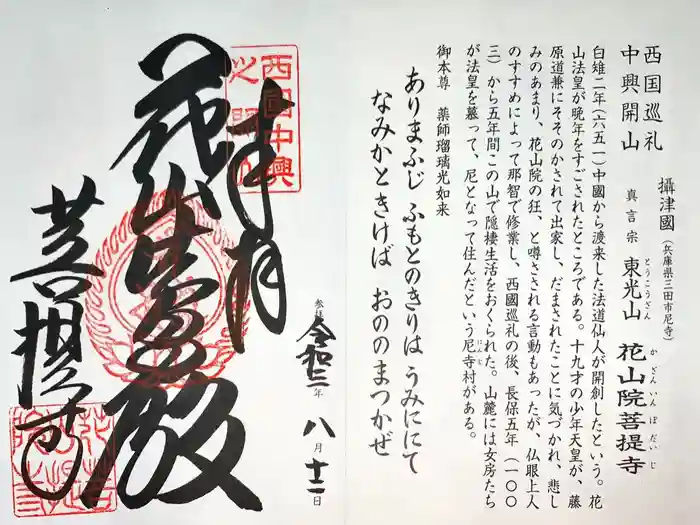 西国巡礼
中興開山
攝津國(兵庫県三田市尼寺)
真言宗 東光山 花山院菩提寺
とうこうざん かざんいんぼだいじ
白雉二年(六五一)中國から渡来した法道仙人が開創したという。花
山法皇が晩年をすごされたところである。十九才の少年天皇が、藤
原道兼にそそのかされて出家し、だまされたことに気づかれ、悲し
みのあまり、花山院の狂、と噂さされる言動もあったが、仏眼上人
のすすめによって那智で修業し、西國巡礼の後、長保五年(一〇〇
三)から五年間この山で隠棲生活をおくられた。山麓には女房たち
が法皇を慕って、尼となって住んだという尼寺村がある。
にんじ
御本尊 薬師瑠璃光如来
ありまふじ ふもとのきりは うみににて
なみかときけば おののまつかぜ
西國中興
奉拝
参拝令和三年八月十二日
花山法皇殿
菩提寺